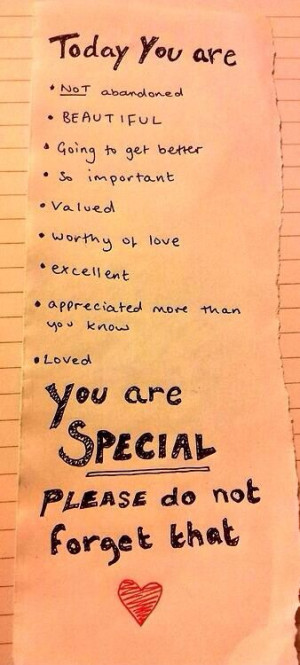 Today You are
• NOT abandoned
• BEAUTIFUL
• Going to get better
• So important
• Valued
• worthy of love
• excellent
• appreciated more than
you know
• Loved
You are
SPECIAL
PLEASE do not
forget that